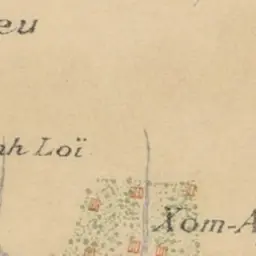 eu
nh Loï
Xom-A